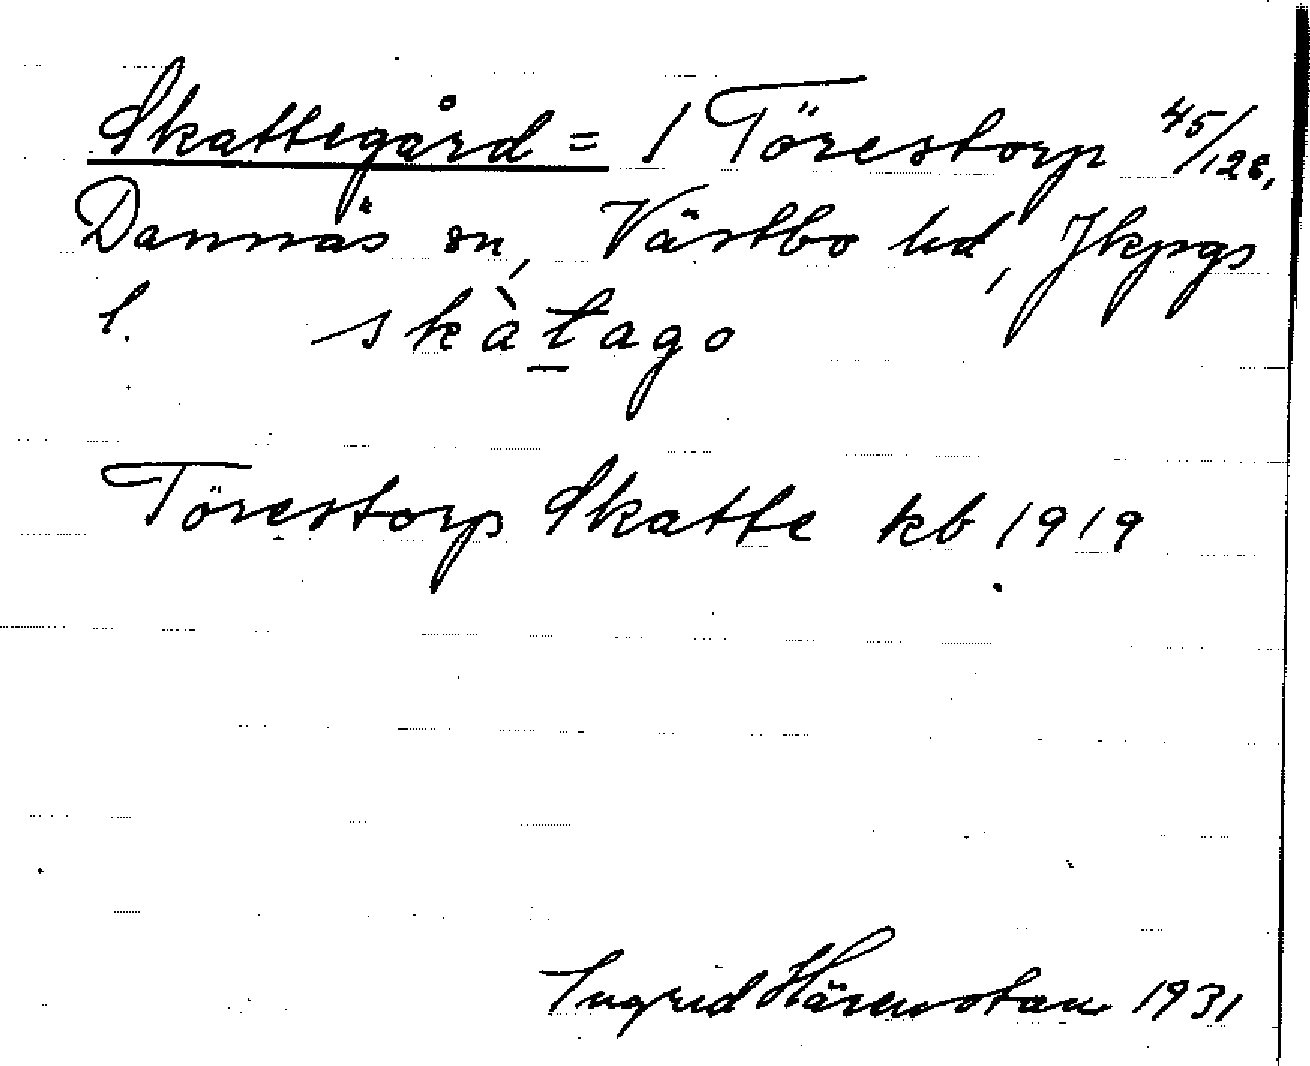 Skattegård = 1 Törestorp 45/128,
Dannäs sn, Västbo hd, Jkpgs
l. skàt̲ago
Törestorp Skatte kb 1919
Ingrid Härenstam 1931